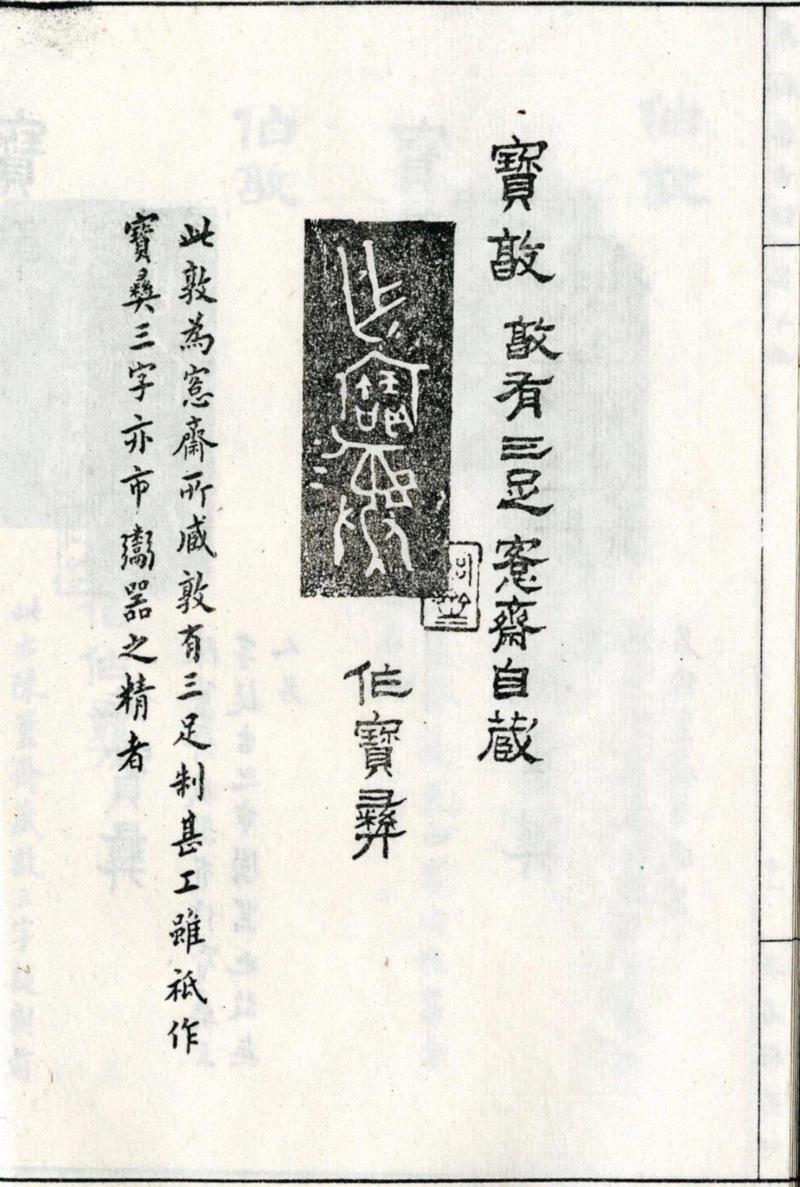 寶敦 敦有三足愙齋自藏
乍寶彝
作寶彝
此敦為愙齋所藏敦有三足制甚工雖祗作
寶彝三字亦市鬻器之精者